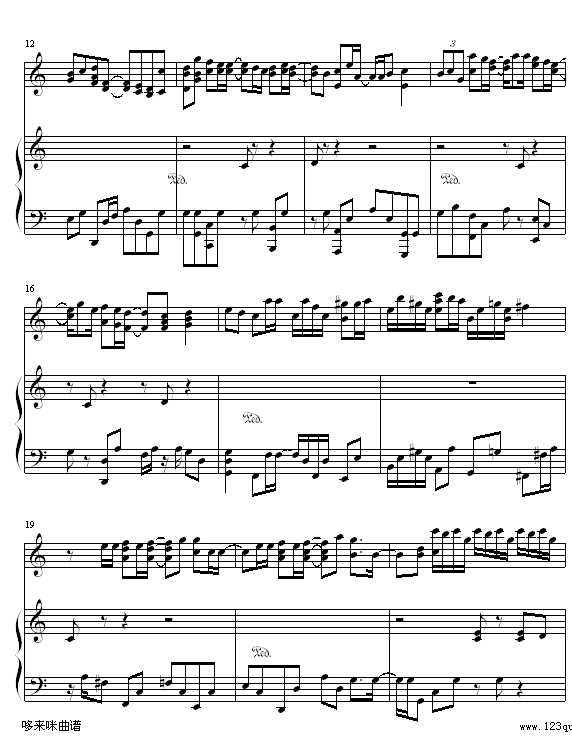 12
3
Ped.
Ped.
16
Ped.
19
Ped.
哆来咪曲谱
www.123qu